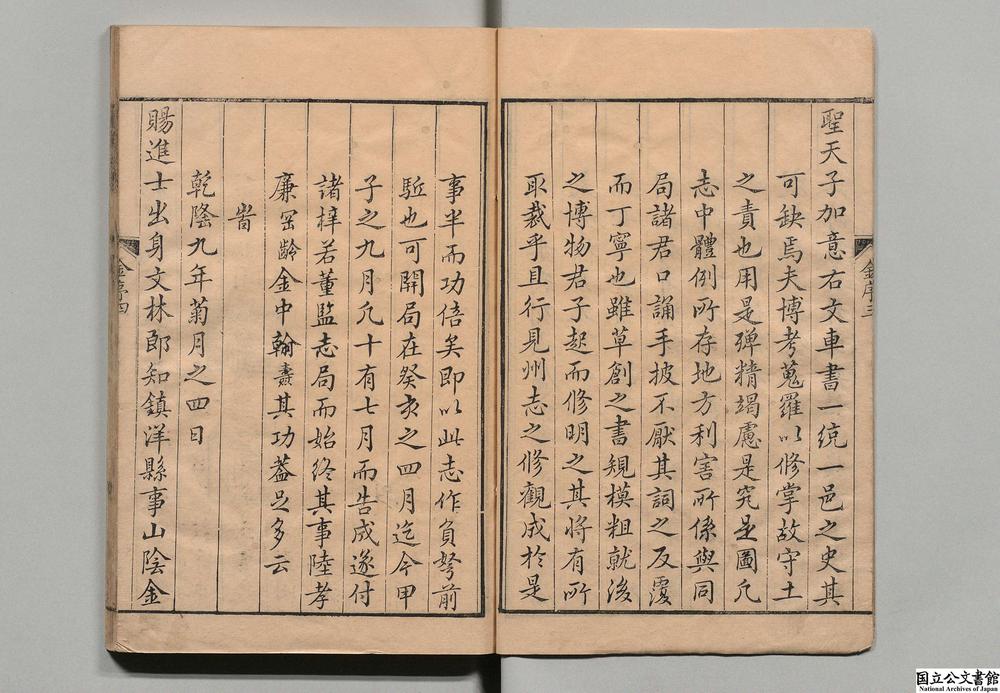 聖天子加意右文車書一統一邑之史其
可缺焉夫博考蒐羅以修掌故守土
之責也用是殫精竭慮是究是圖凡
志中體例所存地方利害所係與同
局諸君口誦手披不厭其詞之反覆
而丁寧也雖草創之書規模粗就後
之博物君子起而修明之其將有所
取裁乎且行見州志之修觀成於是
金序三
事半而功倍矣即以此志作負弩前
駈也可開局在癸亥之四月迄今甲
子之九月凡十有七月而告成遂付
諸梓若董監志局而始終其事陸孝
廉罡齡金中翰燾其功葢足多云
旹
乾隆九年菊月之四日
賜進士出身文林郎知鎮洋縣事山陰金
金序四
国立公文書館
National Archives of Japan